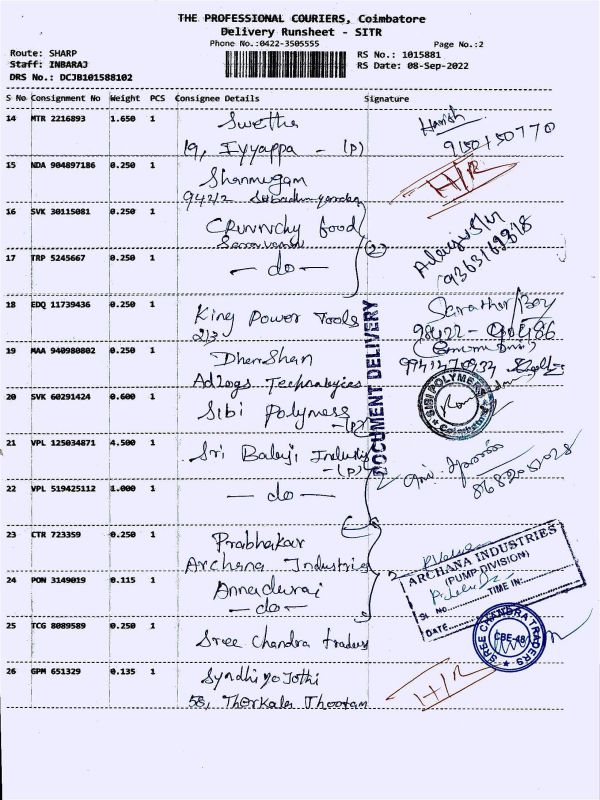 THE PROFESSIONAL COURIERS, Coimbatore
Delivery Runsheet - SITR
Phone No.:0422-3505555
Page No.:2
Route: SHARP
Staff: INBARAJ
DRS No.: DCJB101588102
RS No.: 1015881
RS Date: 08-Sep-2022
S No Consignment No Weight PCS Consignee Details Signature
14 MTR 2216893 1.650 1 Swetha Harish
19, Iyyappa - (P) 9150150770
15 NDA 904897186 0.250 1 Shanmugam H/R
94242
16 SVK 30115081 0.250 1 Crunnchy food
Saravana
17 TRP 5245667 0.250 1 - do -
18 EDQ 11739436 0.250 1 King Power Tools
213
19 MAA 940980802 0.250 1 Dhenshan
Adlogs Technologies
20 SVK 60291424 0.600 1 Sibi Polymers
- (P)
DOCUMENT DELIVERY
SIBI POLYMERS
Coimbatore
21 VPL 125034871 4.500 1 Sri Balaji Industry
- (P)
22 VPL 519425112 1.000 1 - do -
23 CTR 723359 0.250 1 Prabhakar
Archana Industries
24 PON 3149019 0.115 1 Annadurai
- do -
ARCHANA INDUSTRIES
(PUMP DIVISION)
TIME IN:
SL NO.
DATE
25 TCG 8089589 0.250 1 Sree Chandra traders
SREE CHANDRA TRADERS
CBE-48
26 GPM 651329 0.135 1 H/R
58,